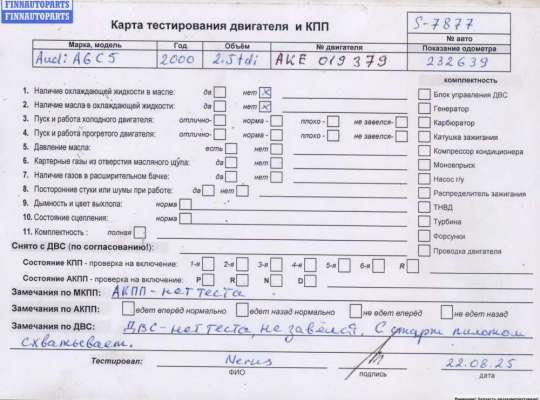 FINNAUTOPARTS
FINNAUTOPARTS
Карта тестирования двигателя и КПП
S-7877
№ авто
Марка, модель Год Объём № двигателя Показание одометра
Audi A6C5 2000 2.5tdi AKE 019379 232639
комплектность
1. Наличие охлаждающей жидкости в масле: да нет
2. Наличие масла в охлаждающей жидкости: да нет
3. Пуск и работа холодного двигателя: отлично- норма - плохо - не завелся-
4. Пуск и работа прогретого двигателя: отлично- норма - плохо - не завелся-
5. Давление масла: есть нет
6. Картерные газы из отверстия масляного щупа: да нет
7. Наличие газов в расширительном бачке: да нет
8. Посторонние стуки или шумы при работе: да нет
9. Дымность и цвет выхлопа: норма
10. Состояние сцепления: норма
11. Комплектность : полная
Блок управления ДВС
Генератор
Карбюратор
Катушка зажигания
Компрессор кондиционера
Моновпрыск
Насос г/у
Распределитель зажигания
ТНВД
Турбина
Форсунки
Проводка двигателя
Снято с ДВС (по согласованию!):
Состояние КПП - проверка на включение: 1-я 2-я 3-я 4-я 5-я 6-я R
Состояние АКПП - проверка на включение: P R N D
Замечания по МКПП: АКПП - нет теста
Замечания по АКПП: едет вперед нормально едет назад нормально не едет вперёд не едет назад
Замечания по ДВС: ДВС - нет теста, не завёлся. С старт пилотом
схватывает.
Тестировал: 22.08.25
ФИО подпись дата